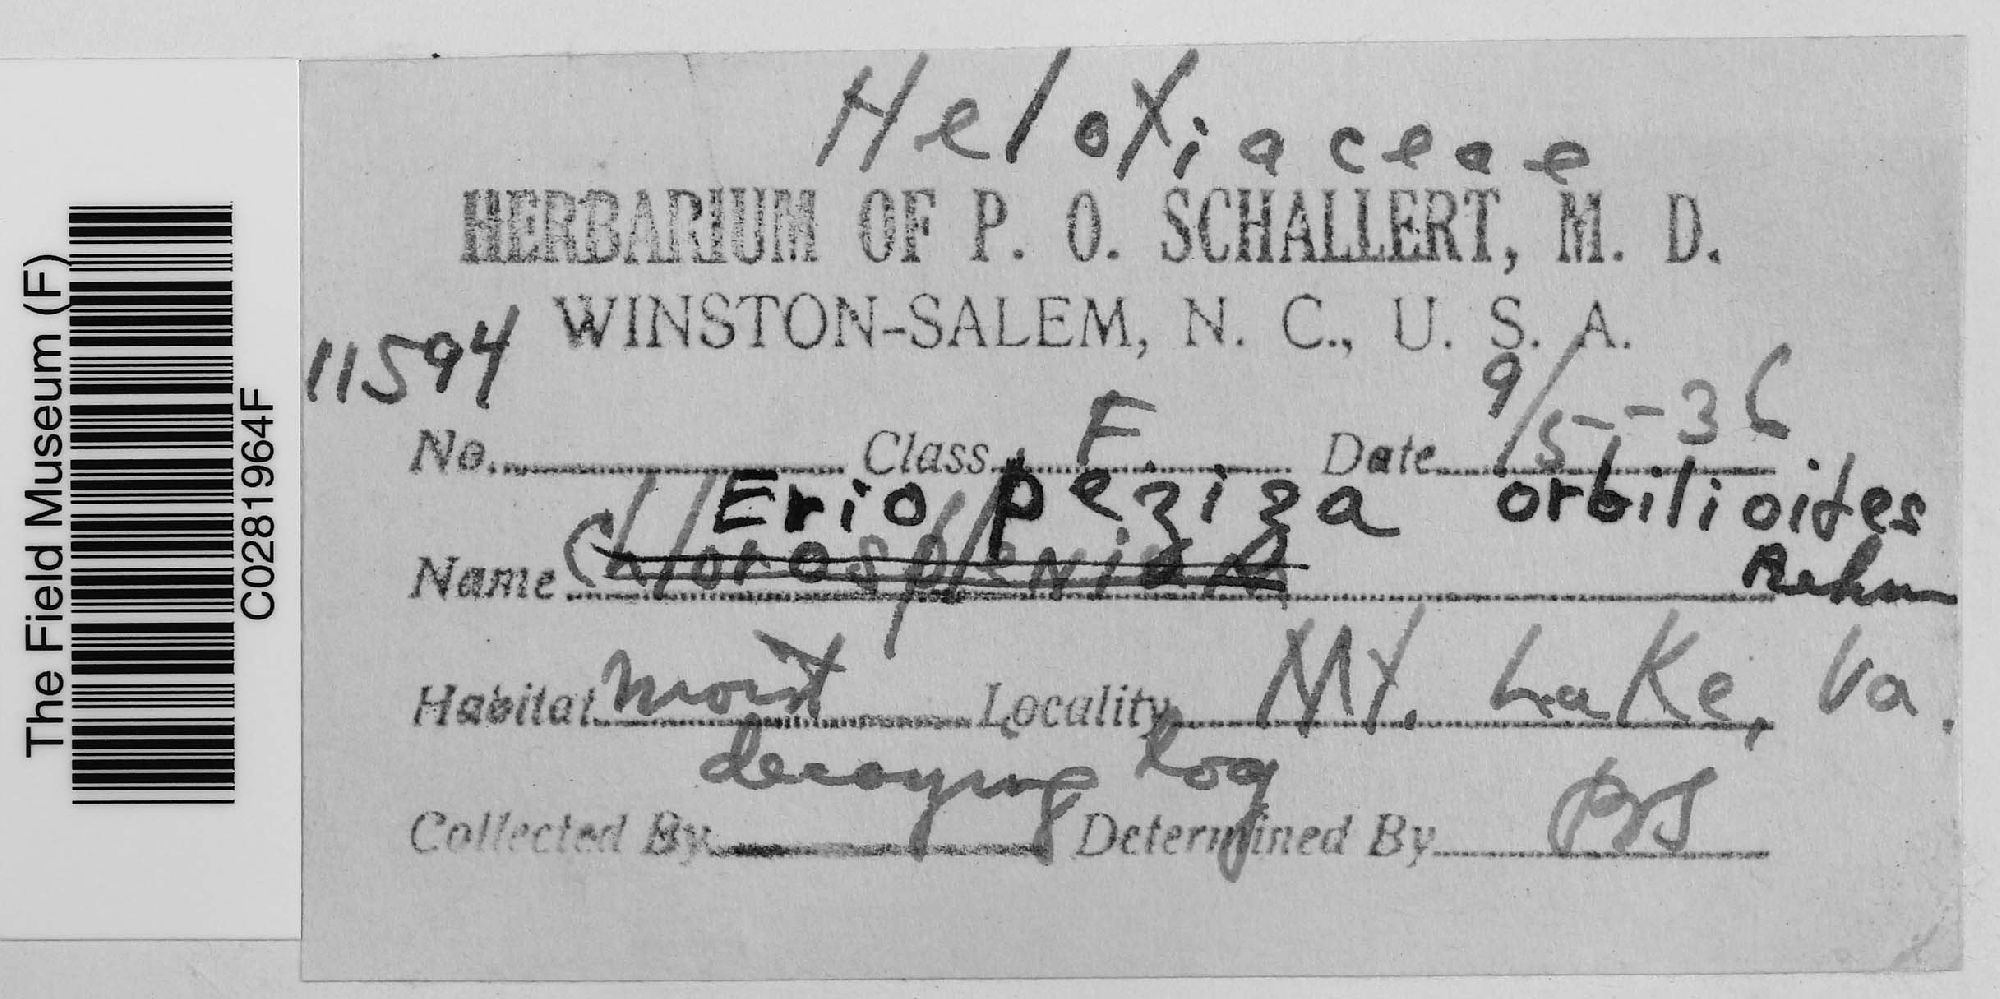 The Field Museum (F)
C0281964F
Helotiaceae
HERBARIUM OF P. O. SCHALLERT, M. D.
WINSTON-SALEM, N. C., U. S. A.
11594
No. Class F. Date 9/5-36
Eriopeziza orbilioides
Rehm
Name Chlorosplenium
Habitat moist Locality Mt. Lake, Va.
decaying log
Collected By Determined By POS